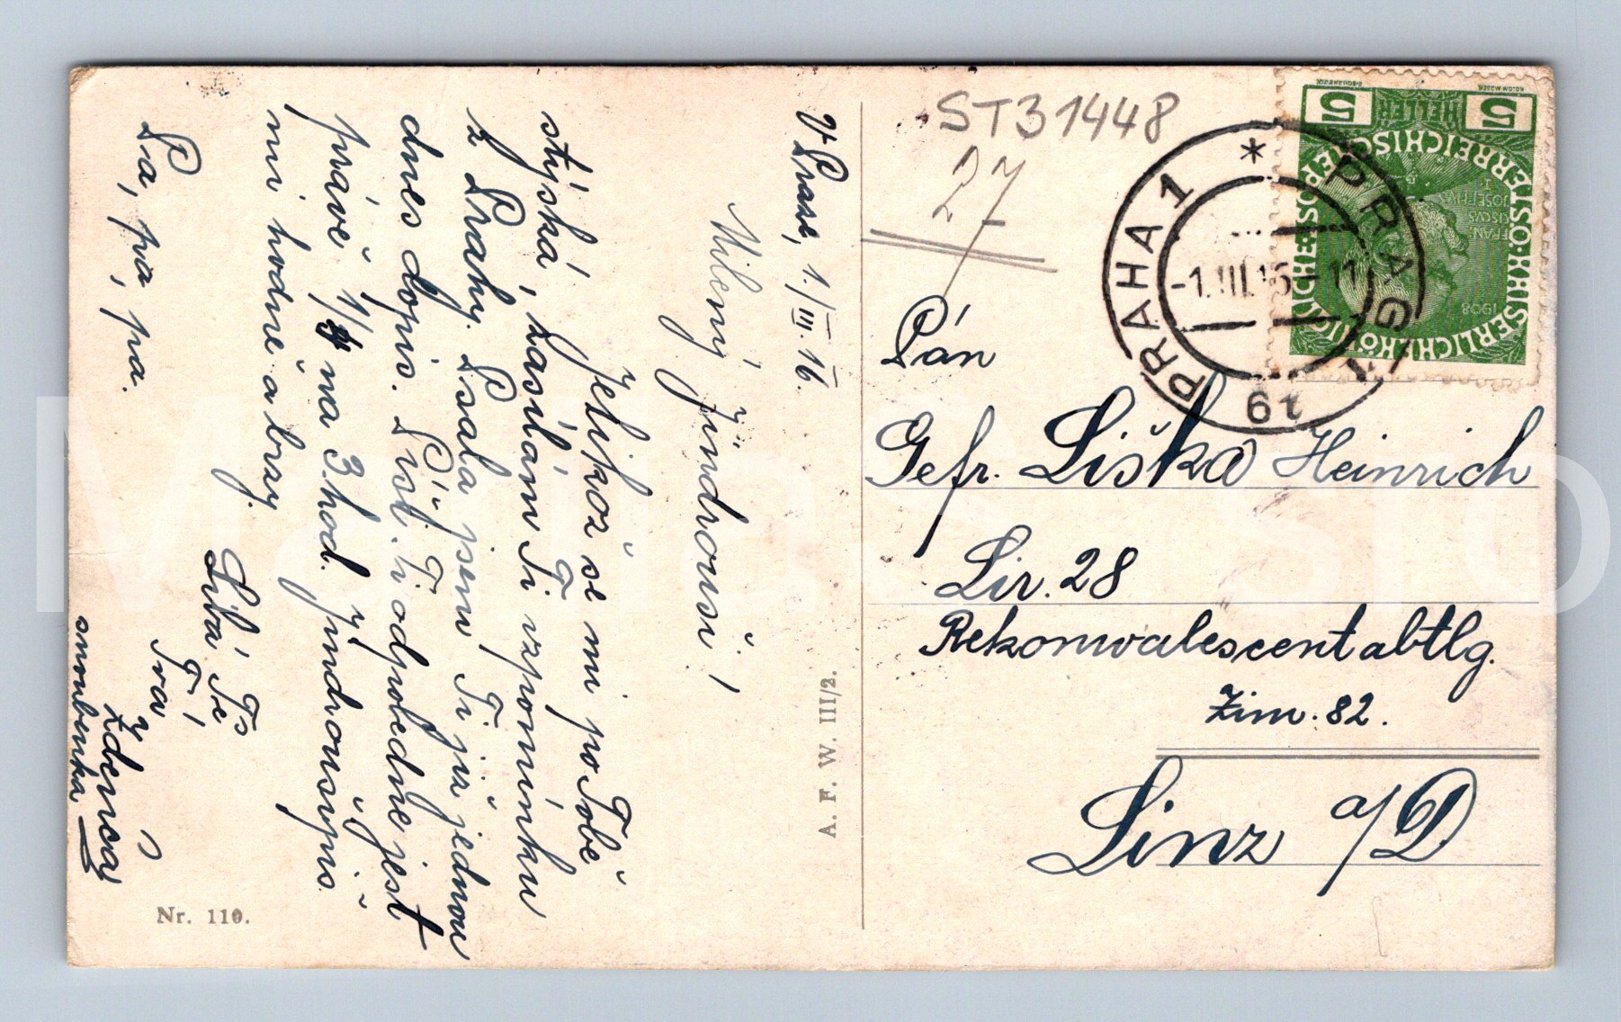 V Praze, 1./III. 16.
Milený Jindrouši!
Jelikož se mi po Tobě
stýská, zasílám Ti vzpomínku
z Prahy. Psala jsem Ti již jednou
dnes dopis. Píši Ti odpoledne jest
právě 1/4 na 3 hod. Jindroušku piš
mi hodně a brzy.
Líbá Tě
Pá, pa, pa.
Tvá
Zdenča
snoubenka
Nr. 110.
A. F. W. III/2.
ST31448
27
PRAHA 1 * PRAG 1
-1.III.16-11
19
5 HELLER 5
KAISERLICH KÖNIGLICHE ÖSTERREICHISCHE
FRANZ JOSEF I
1908
Pán
Gefr. Liška Heinrich
Lir. 28
Rekonwalescentabtlg.
Zim. 82.
Linz a/D